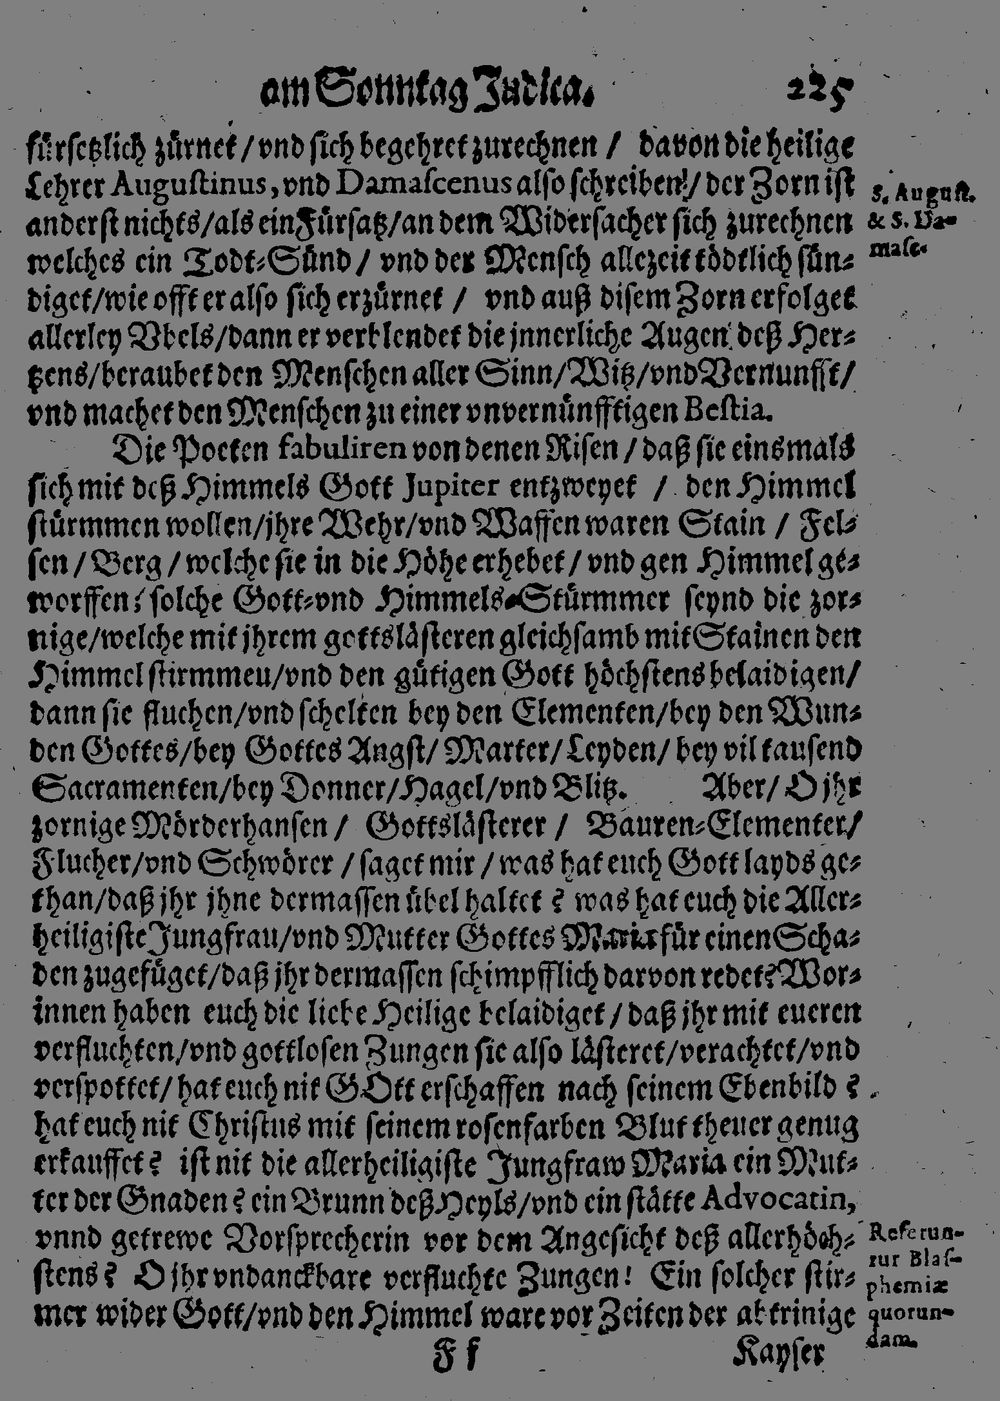 am Sonntag Judica. 225
fürsetzlich zürnet / vnd sich begehret zurechnen / davon die heilige
Lehrer Augustinus, vnd Damascenus also schreiben / der Zorn ist
anderst nichts / als ein Fürsatz / an dem Widersacher sich zurechnen
S. August.
& S. Da-
masc.
welches ein Todt-Sünd / vnd der Mensch allezeit tödtlich sün-
diget / wie offt er also sich erzürnet / vnd auß disem Zorn erfolget
allerley Vbels / dann er verblendet die jnnerliche Augen deß Her-
tzens / beraubet den Menschen aller Sinn / Witz / vnd Vernunfft /
vnd machet den Menschen zu einer vnvernünfftigen Bestia.
Die Poeten fabuliren von denen Risen / daß sie einsmals
sich mit deß Himmels Gott Jupiter entzweyet / den Himmel
stürmmen wollen / jhre Wehr / vnd Waffen waren Stain / Fel-
sen / Berg / welche sie in die Höhe erhebet / vnd gen Himmel ge-
worffen; solche Gott-vnd Himmels-Stürmmer seynd die zor-
nige / welche mit jhrem gottslästeren gleichsamb mit Stainen den
Himmel stirmmen / vnd den gütigen Gott höchstens belaidigen /
dann sie fluchen / vnd schelten bey den Elementen / bey den Wun-
den Gottes / bey Gottes Angst / Marter / Leyden / bey vil tausend
Sacramenten / bey Donner / Hagel / vnd Blitz. Aber / O jhr
zornige Mörderhansen / Gottslästerer / Bauren-Elementer /
Flucher / vnd Schwörer / saget mir / was hat euch Gott layds ge-
than / daß jhr jhne dermassen übel haltet? was hat euch die Aller-
heiligiste Jungfrau / vnd Mutter Gottes Maria für einen Scha-
den zugefüget / daß jhr dermassen schimpfflich darvon redet? Wor-
innen haben euch die liebe Heilige belaidiget / daß jhr mit eueren
verfluchten / vnd gottlosen Zungen sie also lästeret / verachtet / vnd
verspottet / hat euch nit GOtt erschaffen nach seinem Ebenbild?
hat euch nit Christus mit seinem rosenfarben Blut theuer genug
erkauffet? ist nit die allerheiligiste Jungfraw Maria ein Mut-
ter der Gnaden? ein Brunn deß Heyls / vnd ein stätte Advocatin,
vnnd getrewe Vorsprecherin vor dem Angesicht deß allerhöch-
stens? O jhr vndanckbare verfluchte Zungen! Ein solcher stir-
mer wider Gott / vnd den Himmel ware vor Zeiten der abtrinige
Referun-
tur Blas-
phemiæ
quorun-
dam.
Ff Kayser